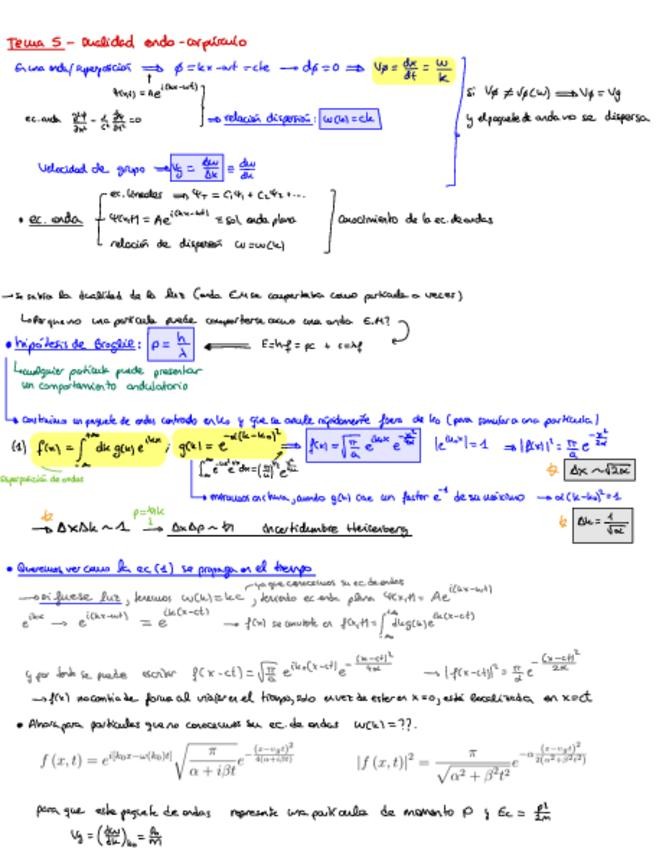 Tema 5 - Dualidad onda-corpúsculo
En una onda/superposición ⟹ φ = kx-ωt = cte → dφ=0 ⟹ Vφ = dx/dt = ω/k
Ψ(x,t) = Ae^{i(kx-ωt)}
si Vφ ≠ Vφ(ω) ⟹ Vφ = Vg
y el paquete de onda no se dispersa
ec. onda
⟹ relación dispersión: ω(k) = ck
Velocidad de grupo → Vg = Δω/Δk ≡ dω/dk
ec. lineales ⟹ Ψ_T = C₁Ψ₁ + C₂Ψ₂ + ...
• ec. onda Ψ(x,t) = Ae^{i(kx-ωt)} ≡ sol. onda plana
conocimiento de la ec. de ondas
relación de dispersión ω=ω(k)
→ Se sabía la dualidad de la luz (onda EM se comportaba como partícula a veces)
↳ Por que no una partícula puede comportarse como una onda E.M?
• hipótesis de Broglie: p = h/λ ⟸ E=hf = pc + c=λf
↳ cualquier partícula puede presentar
un comportamiento ondulatorio
↳ construimos un paquete de ondas centrado en k₀ y que se anule rápidamente fuera de k₀ (para simular a una partícula)
(1) f(x) = ∫_{-∞}^{+∞} dk g(k) e^{ikx} ; g(k) = e^{-α(k-k₀)²} ⟹ f(x) = √(π/α) e^{ik₀x} e^{-x²/4α} |e^{ik₀x}| = 1 ⟹ |f(x)|² = π/α e^{-x²/2α}
Superposición de ondas
Δx ~ √2α
↳ entonces anchura, cuando g(k) cae un factor e⁻¹ de su máximo → α(k-k₀)²=1
Δk = 1/√α
→ ΔxΔk ~ 1 p=ħk → ΔxΔp ~ ħ incertidumbre Heisenberg
• Queremos ver como la ec (1) se propaga en el tiempo
ya que conocemos su ec. de ondas
→ si fuese luz, tenemos ω(k) = kc, teniendo ec. onda plana Ψ(x,t) = Ae^{i(kx-ωt)}
e^{ikx} → e^{i(kx-ωt)} = e^{ik(x-ct)} → f(x) se convierte en f(x,t) = ∫_{-∞}^{+∞} dk g(k) e^{ik(x-ct)}
y por tanto se puede escribir f(x-ct) = √(π/α) e^{ik₀(x-ct)} e^{-(x-ct)²/4α} → |f(x-ct)|² = π/α e^{-(x-ct)²/2α}
→ f(x) no cambia de forma al viajar en el tiempo, solo en vez de estar en x=0, está localizada en x=ct
• Ahora para partículas que no conocemos su ec. de ondas ω(k) = ??.
f(x,t) = e^{i[k₀x-ω(k₀)t]} √(π/(α+iβt)) e^{-(x-v_g t)²/4(α+iβt)} |f(x,t)|² = π/√(α²+β²t²) e^{-α(x-v_g t)²/2(α²+β²t²)}
para que este paquete de ondas represente una partícula de momento p y Ec = p²/2m
Vg = (dω/dk)_{k₀} = p₀/m